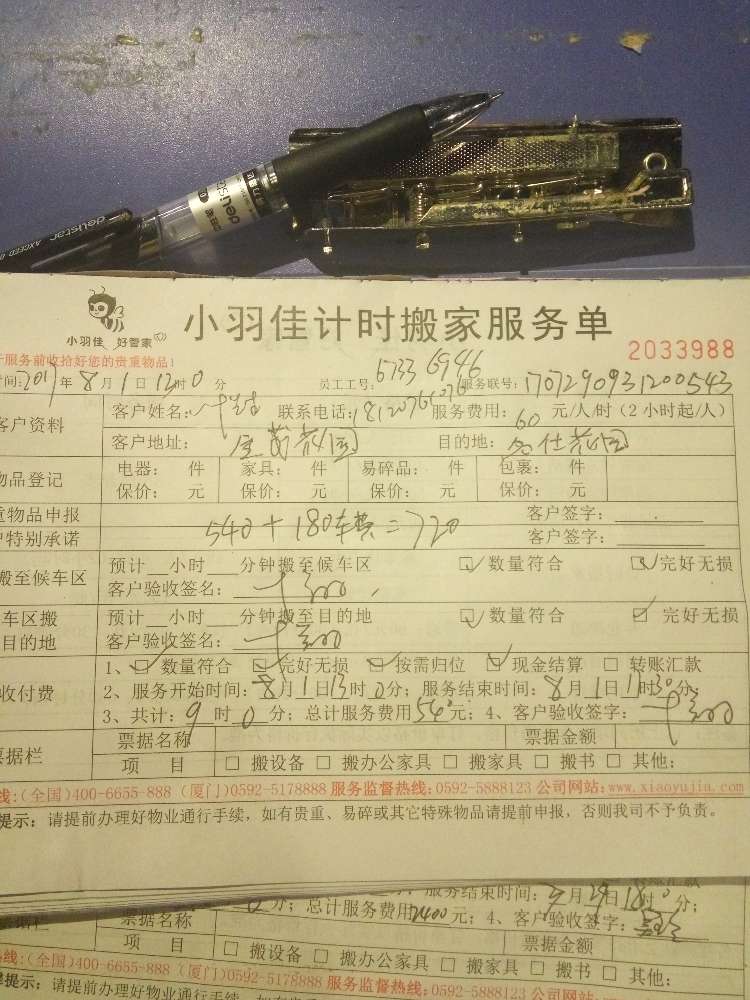 delistar AXCEED
delistar
小羽佳 好管家
小羽佳计时搬家服务单
2033988
服务前收拾好您的贵重物品!
时间:2017年8月1日12时0分 员工工号: 6733 6946 服务联号:170729093120054​3
客户资料 客户姓名: 联系电话: 服务费用:60元/人/时(2小时起/人)
客户地址: 花园 目的地: 花园
物品登记 电器: 件 家具: 件 易碎品: 件 包裹: 件
保价: 元 保价: 元 保价: 元 保价: 元
重物品申报 客户签字:
540+180车费=720
户特别承诺 客户签字:
搬至候车区 预计__小时__分钟搬至候车区 ☑数量符合 ☑完好无损
客户验收签名:
车区搬 预计__小时__分钟搬至目的地 ☑数量符合 ☑完好无损
目的地 客户验收签名:
收付费 1、☑数量符合 ☑完好无损 ☑按需归位 ☑现金结算 □转账汇款
2、服务开始时间:8月1日13时0分;服务结束时间:8月1日17时30分;
3、共计:9时0分;总计服务费用540元;4、客户验收签字:
票据栏 票据名称 票据金额
项 目 □搬设备 □搬办公家具 □搬家具 □搬书 □其他:
线:(全国)400-6655-888 (厦门)0592-5178888 服务监督热线:0592-5888123 公司网站:www.xiaoyujia.com
提示:请提前办理好物业通行手续,如有贵重、易碎或其它特殊物品请提前申报,否则我司不予负责。
服务结束时间: 月29日18时0分;
分;总计服务费用2400元;4、客户验收签字:
票据栏 票据名称 票据金额
项 目 □搬设备 □搬办公家具 □搬家具 □搬书 □其他:
热线:(全国)400-6655-888 (厦门)0592-5178888 服务监督热线:0592-5888123 公司网站:
提示:请提前办理好物业通行手续,如有贵